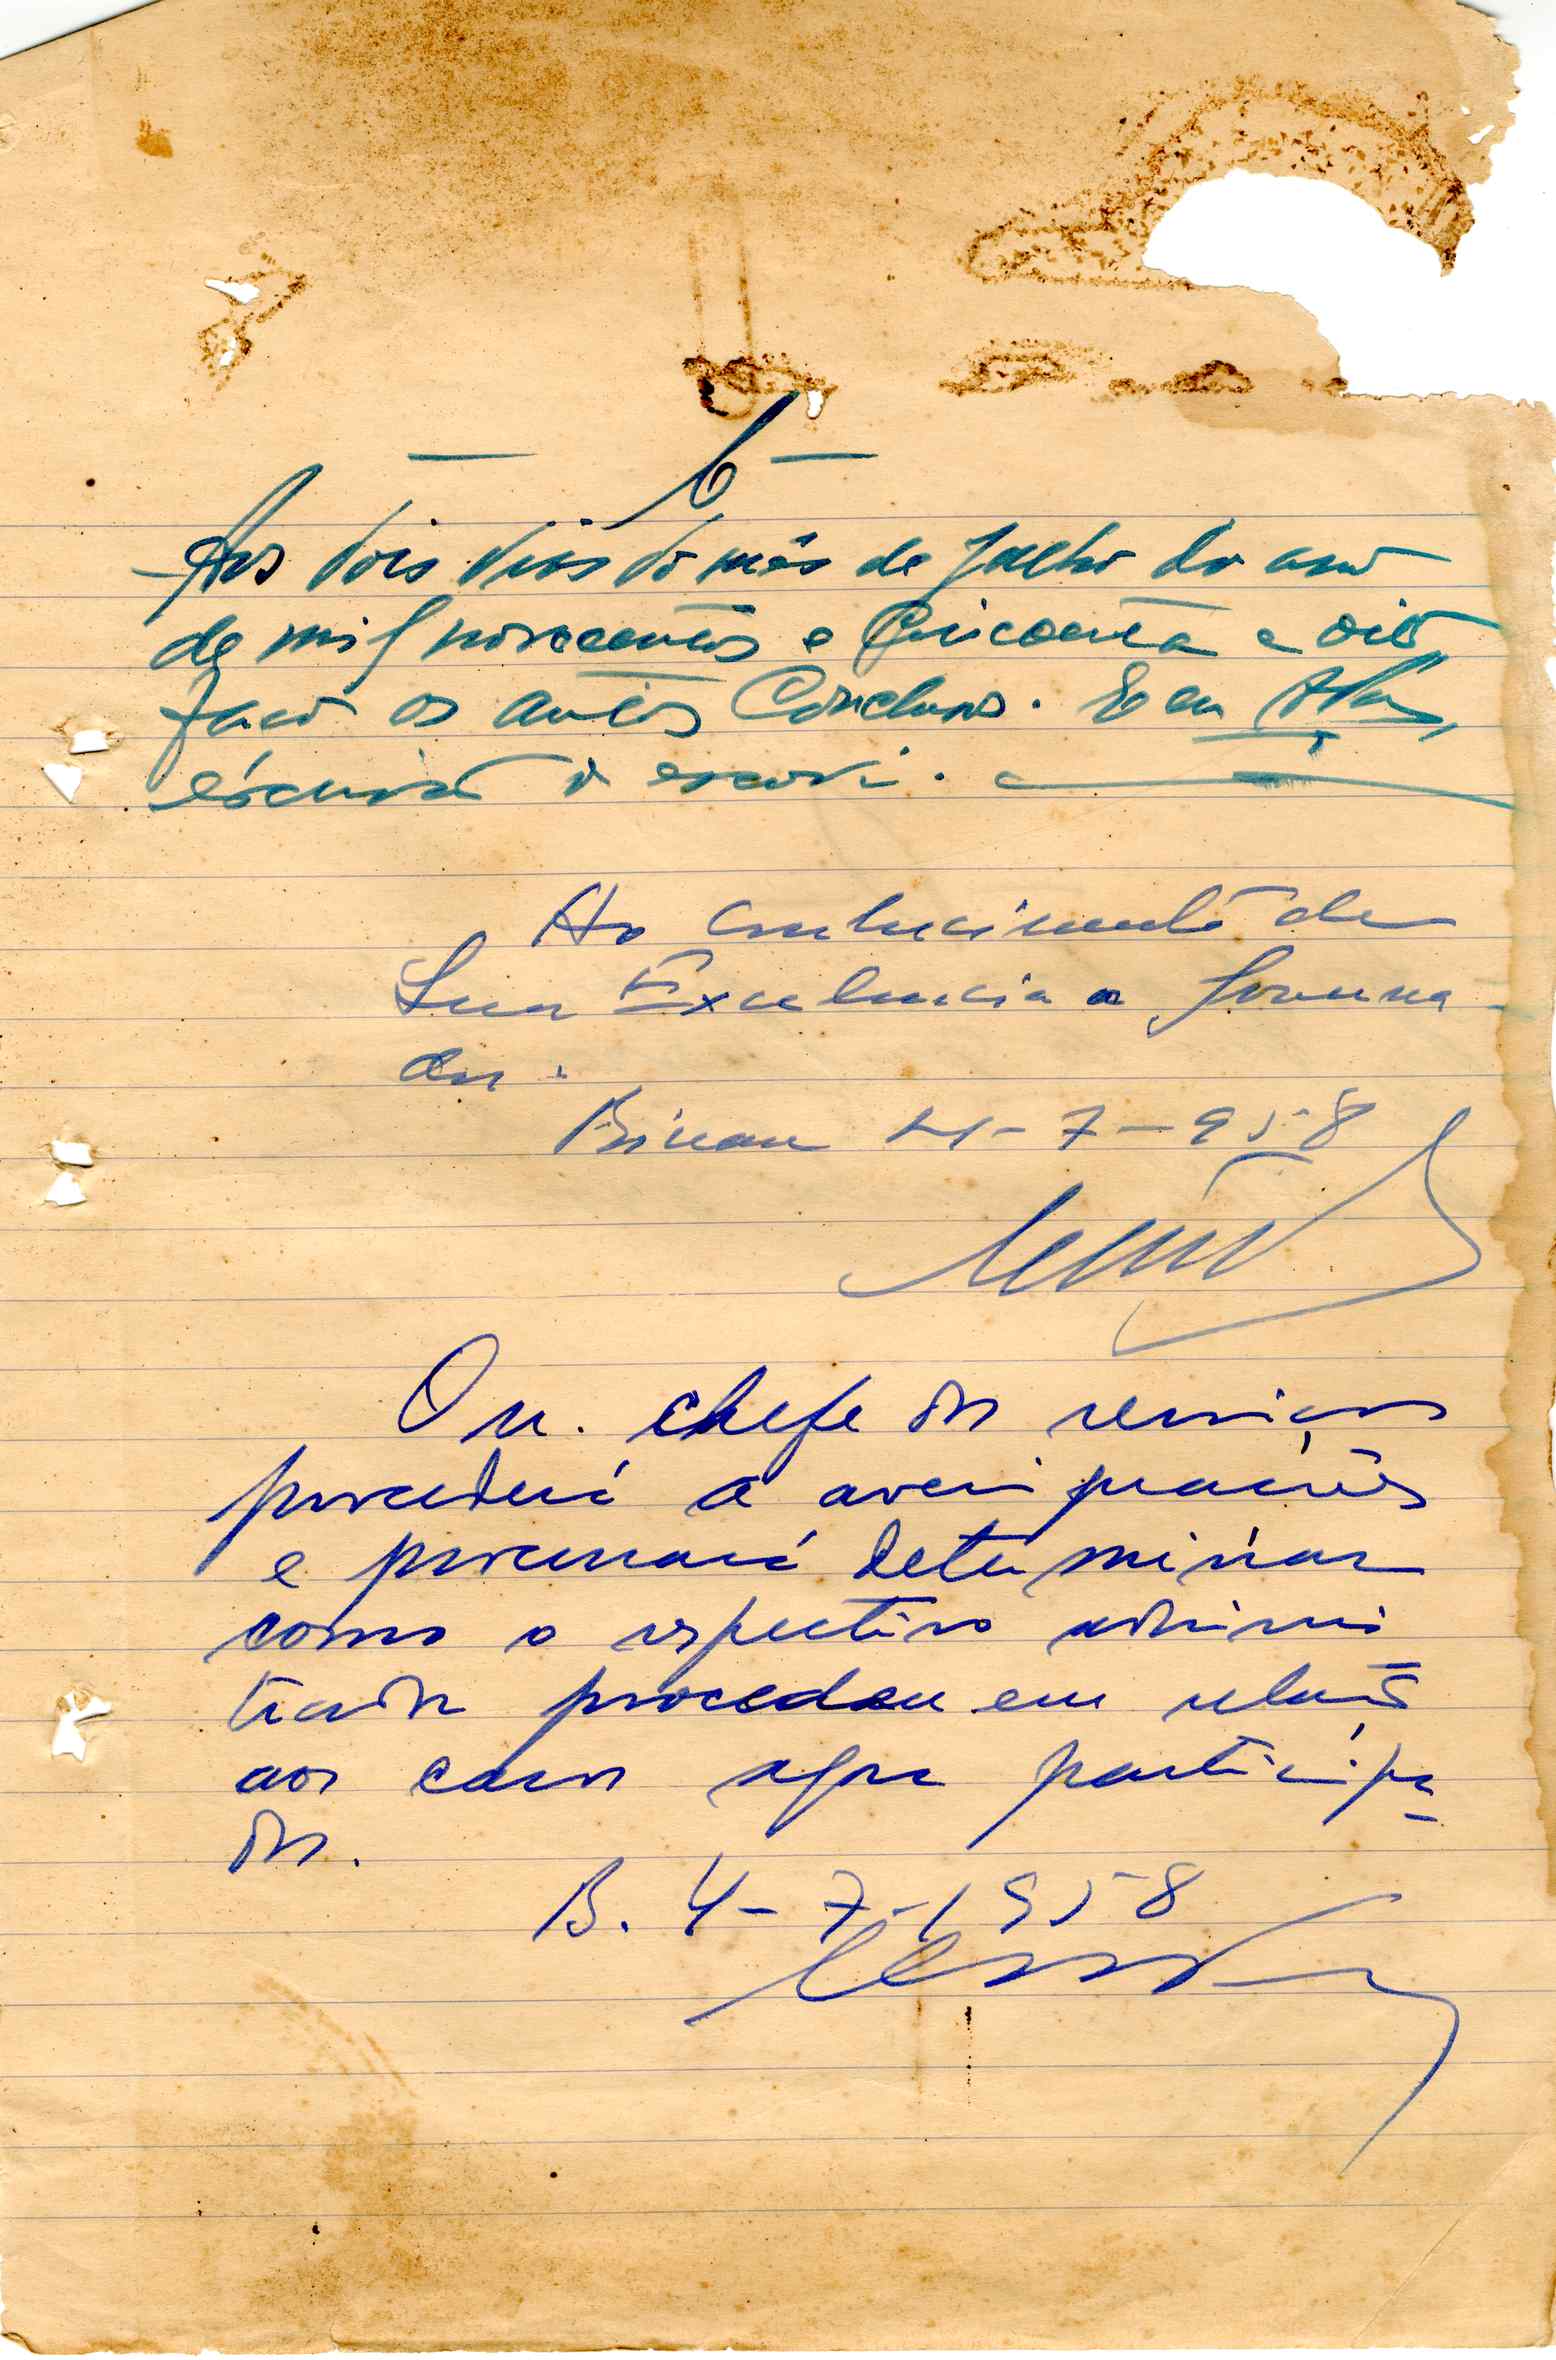 Aos dois dias do mês de Julho do ano
de mil novecentos e cincoenta e oito
faço os autos conclusos. E eu
escrivão o escrevi.
Ao conhecimento de
Sua Excelencia o Governa
dor.
Bissau 4-7-958
O sr. chefe dos serviços
procederá a averiguações
e procurará determinar
como o respectivo adminis
trador procedeu em relação
aos casos agora participa
dos.
B. 4-7-1958